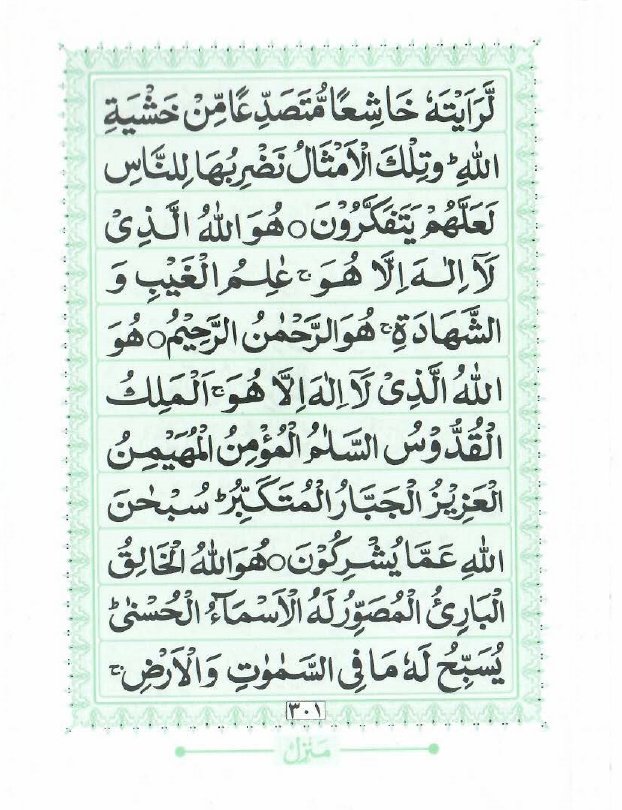 لَّرَاَيْتَهٗ خَاشِعًا مُّتَصَدِّعًا مِّنْ خَشْيَةِ
اللهِ ؕ وَتِلْكَ الْاَمْثَالُ نَضْرِبُهَا لِلنَّاسِ
لَعَلَّهُمْ يَتَفَكَّرُوْنَ ○ هُوَ اللهُ الَّذِىْ
لَآ اِلٰهَ اِلَّا هُوَ ۚ عٰلِمُ الْغَيْبِ وَ
الشَّهَادَةِ ۚ هُوَ الرَّحْمٰنُ الرَّحِيْمُ ○ هُوَ
اللهُ الَّذِىْ لَآ اِلٰهَ اِلَّا هُوَ ۚ اَلْمَلِكُ
الْقُدُّوْسُ السَّلٰمُ الْمُؤْمِنُ الْمُهَيْمِنُ
الْعَزِيْزُ الْجَبَّارُ الْمُتَكَبِّرُ ؕ سُبْحٰنَ
اللهِ عَمَّا يُشْرِكُوْنَ ○ هُوَ اللهُ الْخَالِقُ
الْبَارِئُ الْمُصَوِّرُ لَهُ الْاَسْمَآءُ الْحُسْنٰى ؕ
يُسَبِّحُ لَهٗ مَا فِى السَّمٰوٰتِ وَالْاَرْضِ ۚ
٣٠١
منزل